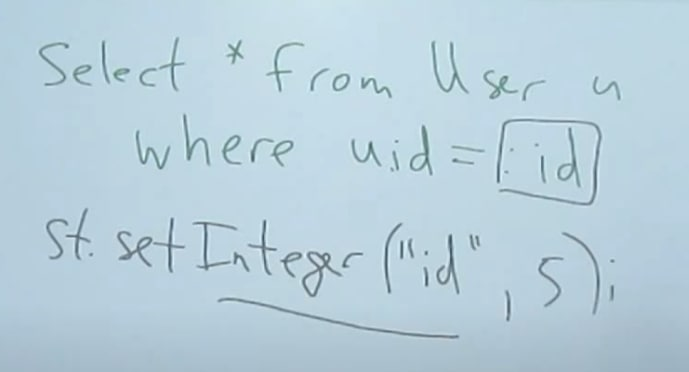 Select * from User u
where u.id = :id
st. setInteger ("id", 5);